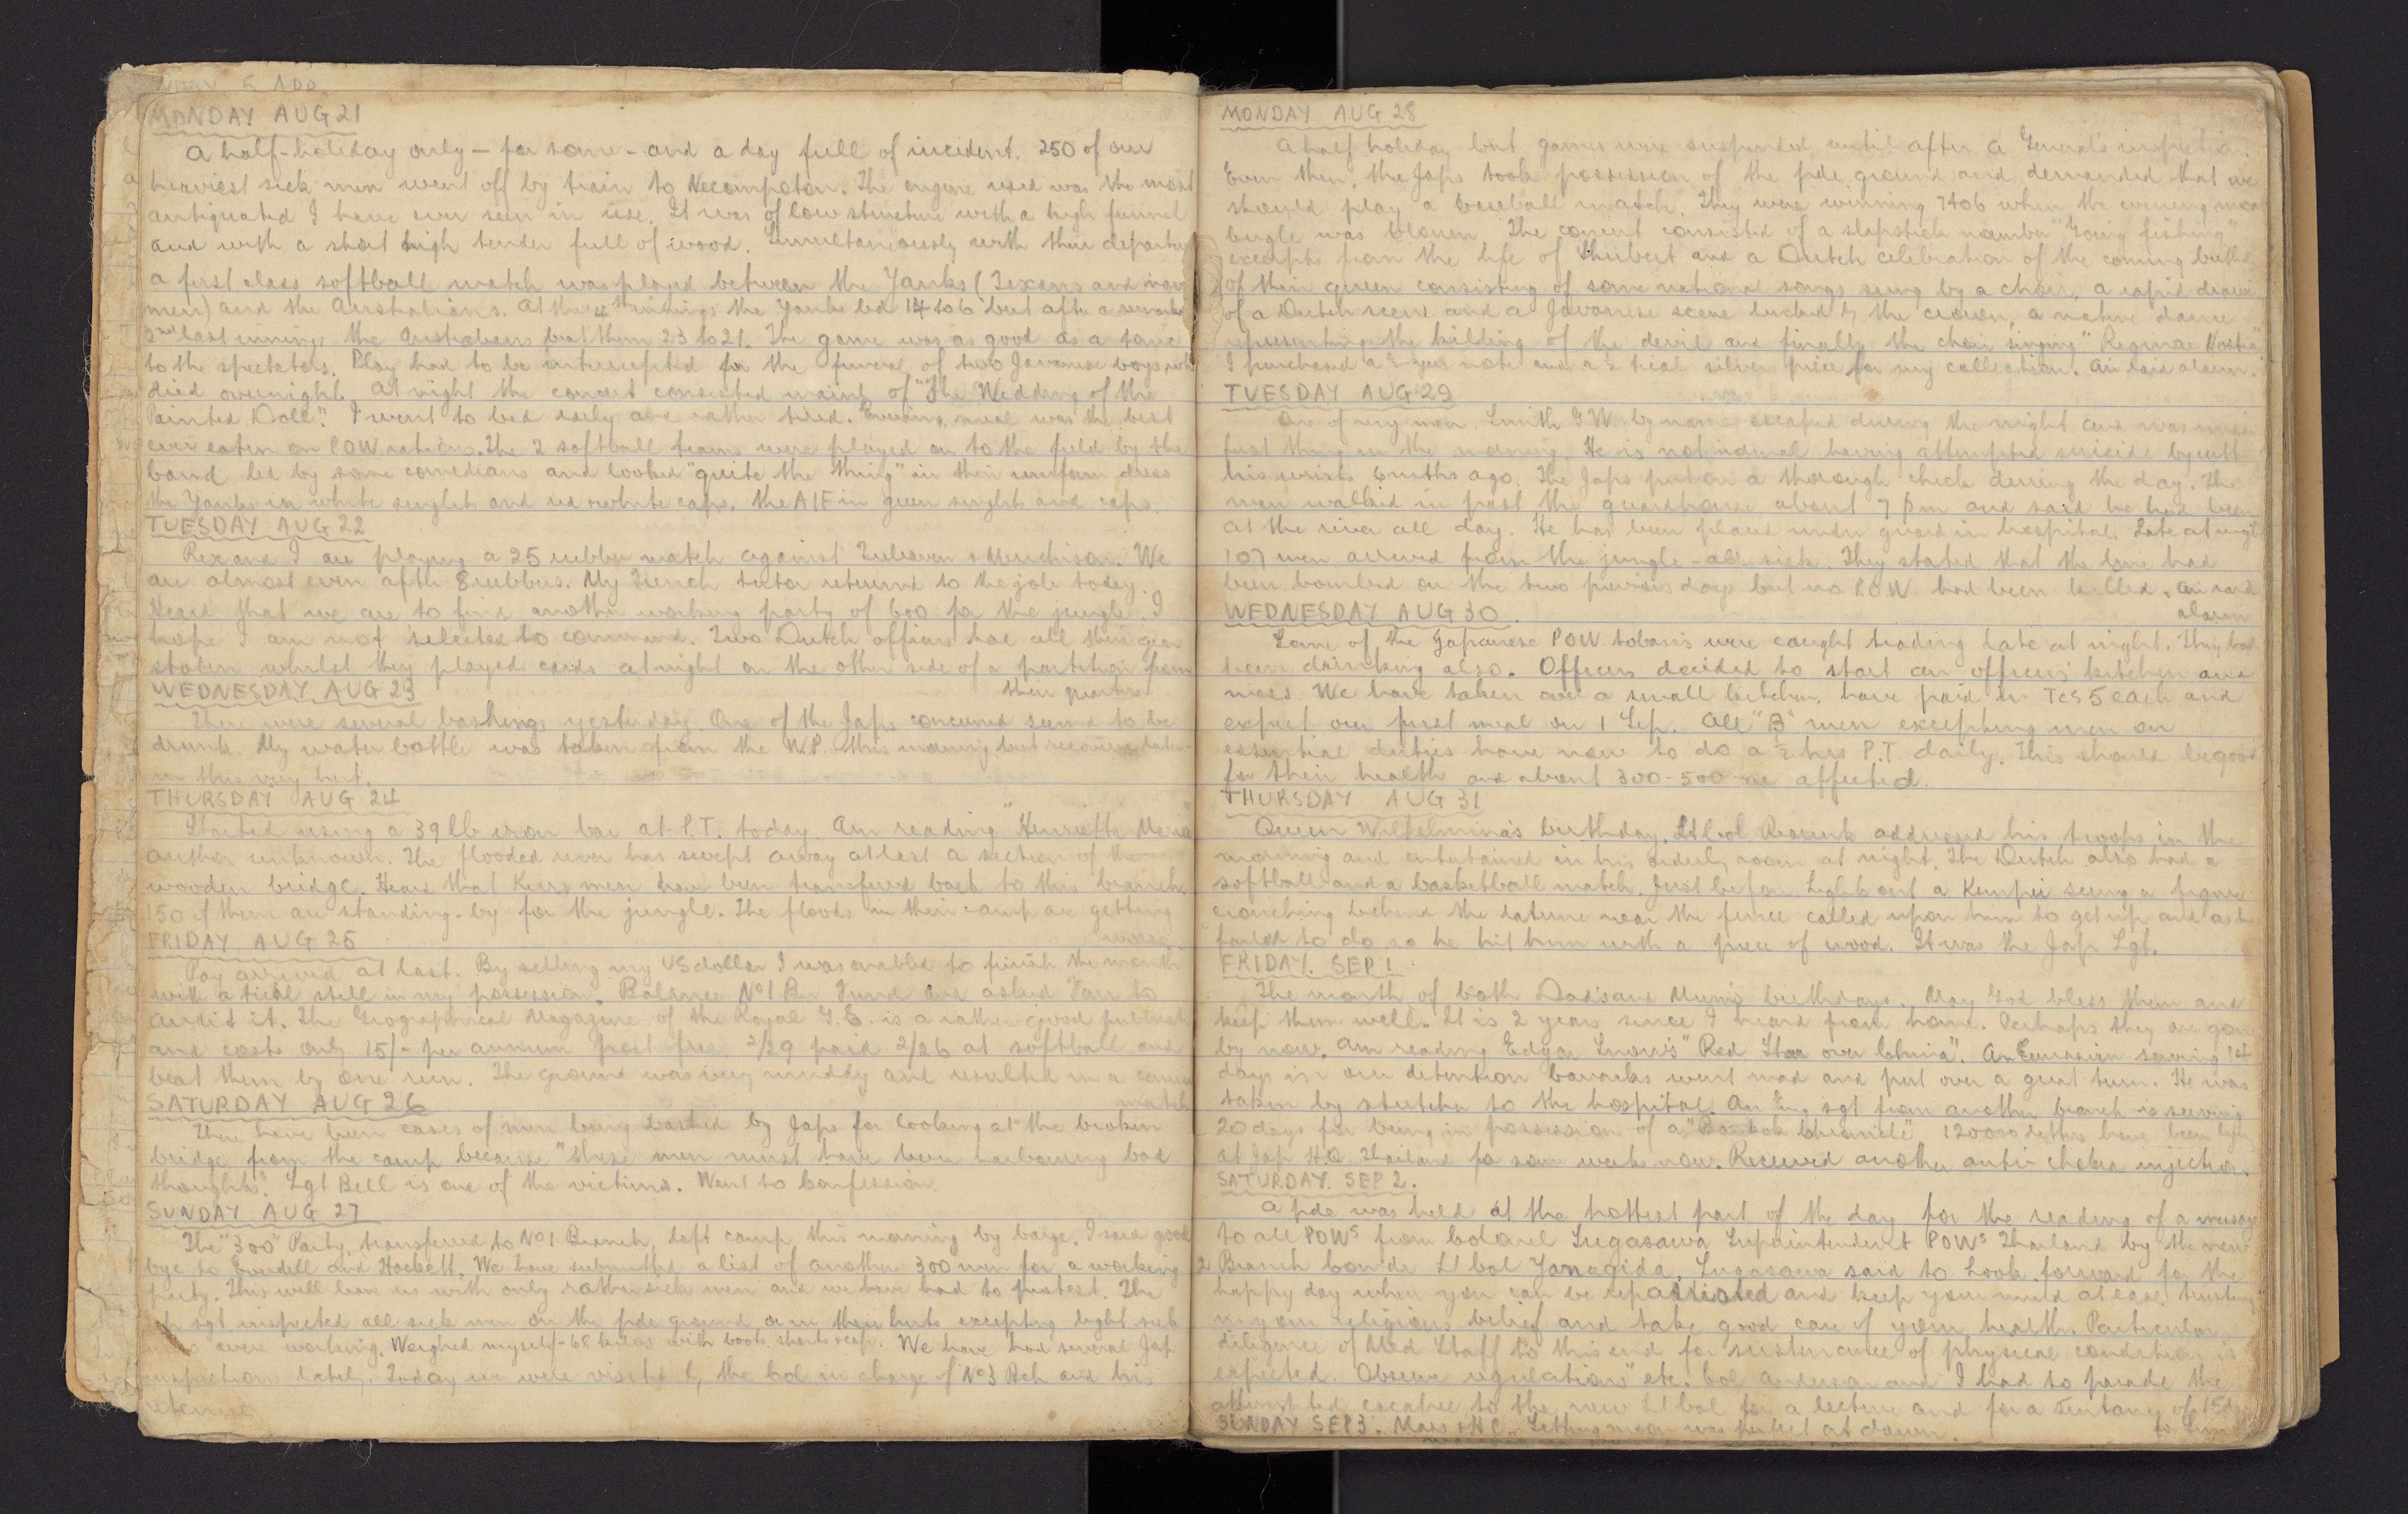 MONDAY AUG 21
A half-holiday only — for some — and a day full of incident. 250 of our
heaviest sick men went off by train to Necompaton. The engine used was the most
antiquated I have ever seen in use. It was of low structure with a high funnel
and with a short high tender full of wood. Simultaneously with their departure
a first class softball match was played between the Yanks (Texans and navy
men) and the Australians. At the 4th innings the Yanks led 14 to 6 but after a
2nd last innings the Australians beat them 23 to 21. The game was as good as a tonic
to the spectators. Play had to be interrupted for the funeral of two Javanese boys who
died overnight. At night the concert consisted mainly of "The Wedding of the
Painted Doll". I went to bed early and rather tired. Evening meal was the best
ever eaten on POW rations. The 2 softball teams were played on to the field by the
band led by some comedians and looked "quite the thing" in their uniform dress
the Yanks in white singlets and red & white caps, the AIF in green singlets and caps.
TUESDAY AUG 22
Rex and I are playing a 25 rubber match against & Murchison. We
are almost even after 8 rubbers. My French tutor returned to the job today.
Heard that we are to find another working party of 600 for the jungle. I
hope I am not selected to command. Two Dutch officers had all their gear
stolen whilst they played cards at night on the other side of a partition from
their quarters.
WEDNESDAY AUG 23
There were several bashings yesterday. One of the Japs concerned seemed to be
drunk. My water bottle was taken from the W.P. this morning but recovered later
in this very hut.
THURSDAY AUG 24
Started using a 39 lb iron bar at P.T. today. Am reading "Henrietta Maria"
author unknown. The flooded river has swept away at last a section of the
wooden bridge. Heard that men have been transferred back to this branch.
150 of them are standing-by for the jungle. The floods in their camp are getting
worse.
FRIDAY AUG 25
Pay arrived at last. By selling my US dollar I was enabled to finish the month
with a tical still in my possession. Balance No 1 Bn Fund and asked to
audit it. The Geographical Magazine of the Royal G.S. is a rather good publication
and costs only 15/- per annum post free. 2/29 paid 2/26 at softball and
beat them by one run. The ground was very muddy and resulted in a comical
match
SATURDAY AUG 26
There have been cases of men being bashed by Japs for looking at the broken
bridge from the camp because "these men must have been harbouring bad
thoughts". Sgt Bell is one of the victims. Went to Confession.
SUNDAY AUG 27
The "300" Party, transferred to No 1 Branch, left camp this morning by barge. I said good
bye to and Hackett. We have submitted a list of another 300 men for a working
party. This will leave us with only rather sick men and we have had to protest. The
sgt inspected all sick men on the pde ground or in their huts excepting light sick
who were working. Weighed myself - 68 kilos with boots, shorts & cap. We have had several Jap
inspections lately. Today we were visited by the Col in charge of No 3 Bch and his
retinue
MONDAY AUG 28
A half holiday but games were suspended until after a General's inspection.
Even then, the Japs took possession of the pde ground and demanded that we
should play a baseball match. They were winning 7 to 6 when the evening meal
bugle was blown. The concert consisted of a slapstick number "Going fishing"
excerpts from the life of Shubert and a Dutch celebration of the coming birthday
of their queen consisting of some national songs sung by a choir, a rapid drawing
of a Dutch scene and a Javanese scene by the crown, a native dance
representing the killing of the devil and finally the choir singing "Reginae Nostra"
I purchased a ½ yen note and a ½ tical silver piece for my collection. Air raid alarm.
TUESDAY AUG 29
One of my men, Smith G.W. by name escaped during the night and was missing
first thing in the morning. He is not normal having attempted suicide by cutting
his wrists 6 mths ago. The Japs put on a thorough check during the day. The
man walked in past the guardhouse about 7 pm and said he had been
at the river all day. He has been placed under guard in hospital. Late at night
107 men arrived from the jungle - all sick. They stated that the line had
been bombed on the two previous days but no P.O.W. had been killed. Air raid
alarm
WEDNESDAY AUG 30.
Some of the Japanese POW tobans were caught trading late at night. They had
been drinking also. Officers decided to start an officers' kitchen and
mess. We have taken over a small kitchen, have paid in Tcs 5 each and
expect our first meal on 1 Sep. All "B" men excepting men on
essential duties have now to do a ½ hrs P.T. daily. This should be good
for their health and about 300-500 are affected.
THURSDAY AUG 31
Queen Wilhelmina's birthday. Lt Col addressed his troops in the
morning and entertained in his orderly room at night. The Dutch also had a
softball and a basketball match. Just before Lights out a Kempei seeing a figure
crouching behind the latrine near the fence called upon him to get up and as he
failed to do so he hit him with a piece of wood. It was the Jap Sgt.
FRIDAY. SEP 1
The month of both Dad's and Mum's birthdays. May God bless them and
keep them well. It is 2 years since I heard from home. Perhaps they are gone
by now. Am reading Edgar Snow's "Red Star over China". An Eurasian serving 14
days in our detention barracks went mad and put over a great turn. He was
taken by stretcher to the hospital. An Eng. sgt from another branch is serving
20 days for being in possession of a "Bankok Chronicle". 120000 letters have been
at Jap H.Q. Thailand for some weeks now. Received another anti-cholera injection.
SATURDAY. SEP 2.
A pde was held at the hottest part of the day for the reading of a message
to all POWs from Colonel Sugasawa Superintendent POWs Thailand by the new
2 Branch Comdr Lt Col Yanagida. Sugasawa said to "Look forward for the
happy day when you can be repatriated and keep your mind at ease, trusting
in your religious belief and take good care of your health. Particular
diligence of Med Staff to this end for sustenance of physical condition is
expected. Observe regulations" etc. Col Anderson and I had to parade the
attempted escapee to the new Lt Col for a lecture and for a sentence of 15 days
for
SUNDAY SEP 3. Mass & H.C. Setting moon was perfect at dawn.